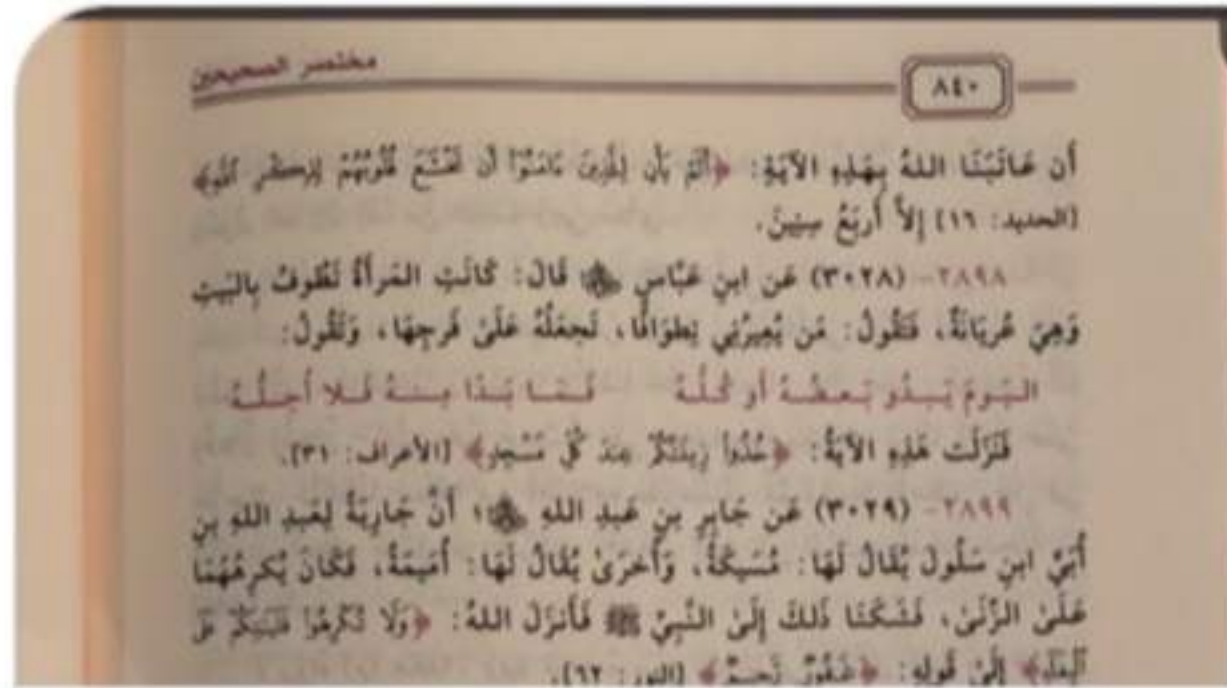 مختصر الصحيحين
٨٤٠
أَن عَاتَبَنَا اللهُ بِهَذِهِ الآيَةِ: ﴿أَلَمْ يَأْنِ لِلَّذِينَ ءَامَنُوٓا۟ أَن تَخْشَعَ قُلُوبُهُمْ لِذِكْرِ ٱللَّهِ﴾
[الحديد: ١٦] إِلاَّ أَربَعُ سِنِينَ.
٢٨٩٨- (٣٠٢٨) عَن ابنِ عَبَّاسٍ ﷺ قَالَ: كَانَتِ المَرأَةُ تَطُوفُ بِالبَيتِ
وَهِيَ عُريَانَةٌ، فَتَقُولُ: مَن يُعِيرُنِي تِطوَافًا، تَجعَلُهُ عَلَىٰ فَرجِهَا، وَتَقُولُ:
اليَومَ يَبدُو بَعضُهُ أَو كُلُّهُ فَمَا بَدَا مِنهُ فَلا أُحِلُّهُ
فَنَزَلَت هَذِهِ الآيَةُ: ﴿خُذُوا۟ زِينَتَكُمْ عِندَ كُلِّ مَسْجِدٍ﴾ [الأعراف: ٣١].
٢٨٩٩- (٣٠٢٩) عَن جَابِرِ بنِ عَبدِ اللهِ ؛ أَنَّ جَارِيَةً لِعَبدِ اللهِ بنِ
أُبَيٍّ ابنِ سَلُولَ يُقَالُ لَهَا: مُسَيكَةُ، وَأُخرَىٰ يُقَالُ لَهَا: أُمَيمَةُ، فَكَانَ يُكرِهُهُمَا
عَلَىٰ الزِّنَىٰ، فَشَكَتَا ذَلِكَ إِلَىٰ النَّبِيِّ ﷺ فَأَنزَلَ اللهُ: ﴿وَلَا تُكْرِهُوا۟ فَتَيَٰتِكُمْ عَلَى
ٱلْبِغَآءِ﴾ إِلَىٰ قَولِهِ: ﴿غَفُورٌ رَّحِيمٌ﴾ [النور: